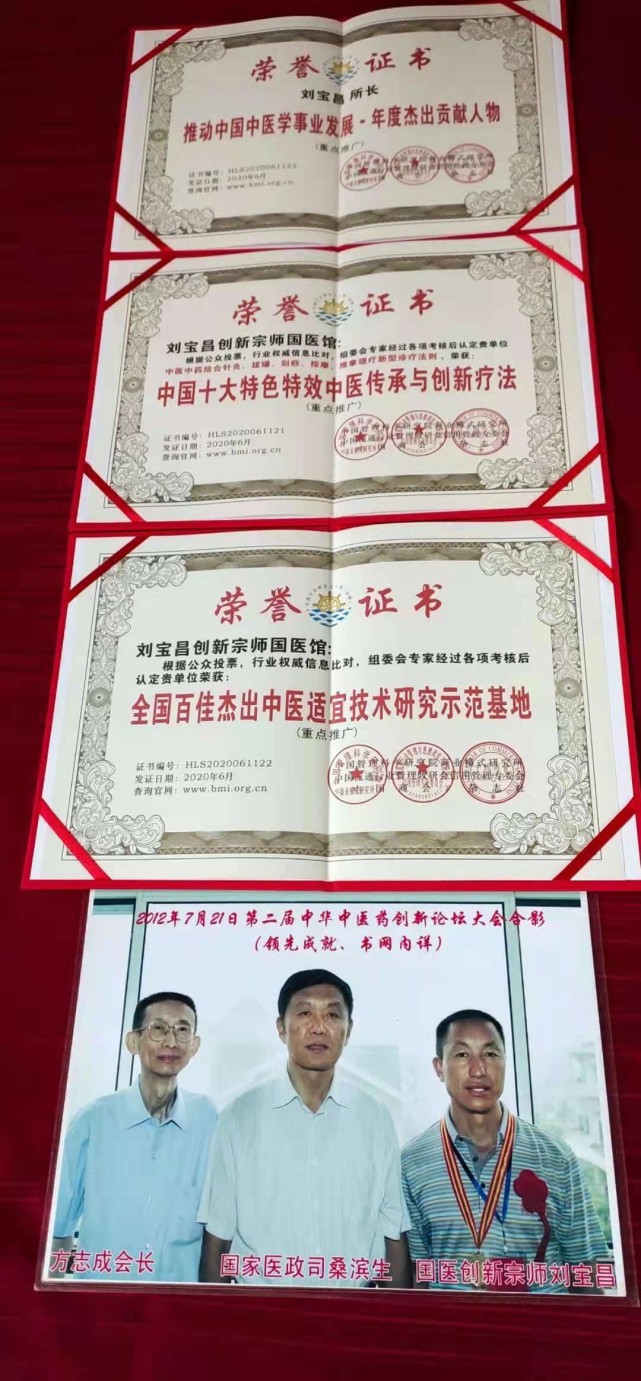 荣誉证书
刘宝昌 所长
推动中国中医学事业发展·年度杰出贡献人物
(重点推广)
证书编号：HLS2020061123
发证日期：2020年6月
查询官网：www.bmi.org.cn
荣誉证书
刘宝昌创新宗师国医馆：
根据公众投票，行业权威信息比对，组委会专家经过各项考核后认定贵单位
中医中药结合针灸、拔罐、刮痧、按摩、推拿理疗新型诊疗法则，荣获：
中国十大特色特效中医传承与创新疗法
(重点推广)
中国管理科学研究院商业模式研究所
证书编号：HLS2020061121
发证日期：2020年6月
查询官网：www.bmi.org.cn
荣誉证书
刘宝昌创新宗师国医馆：
根据公众投票，行业权威信息比对，组委会专家经过各项考核后
认定贵单位荣获：
全国百佳杰出中医适宜技术研究示范基地
(重点推广)
中国管理科学研究院商业模式研究所
证书编号：HLS2020061122
发证日期：2020年6月
查询官网：www.bmi.org.cn
2012年7月21日第二届中华中医药创新论坛大会合影
(领先成就、书网内详)
方志成会长
国家医政司桑滨生
国医创新宗师刘宝昌